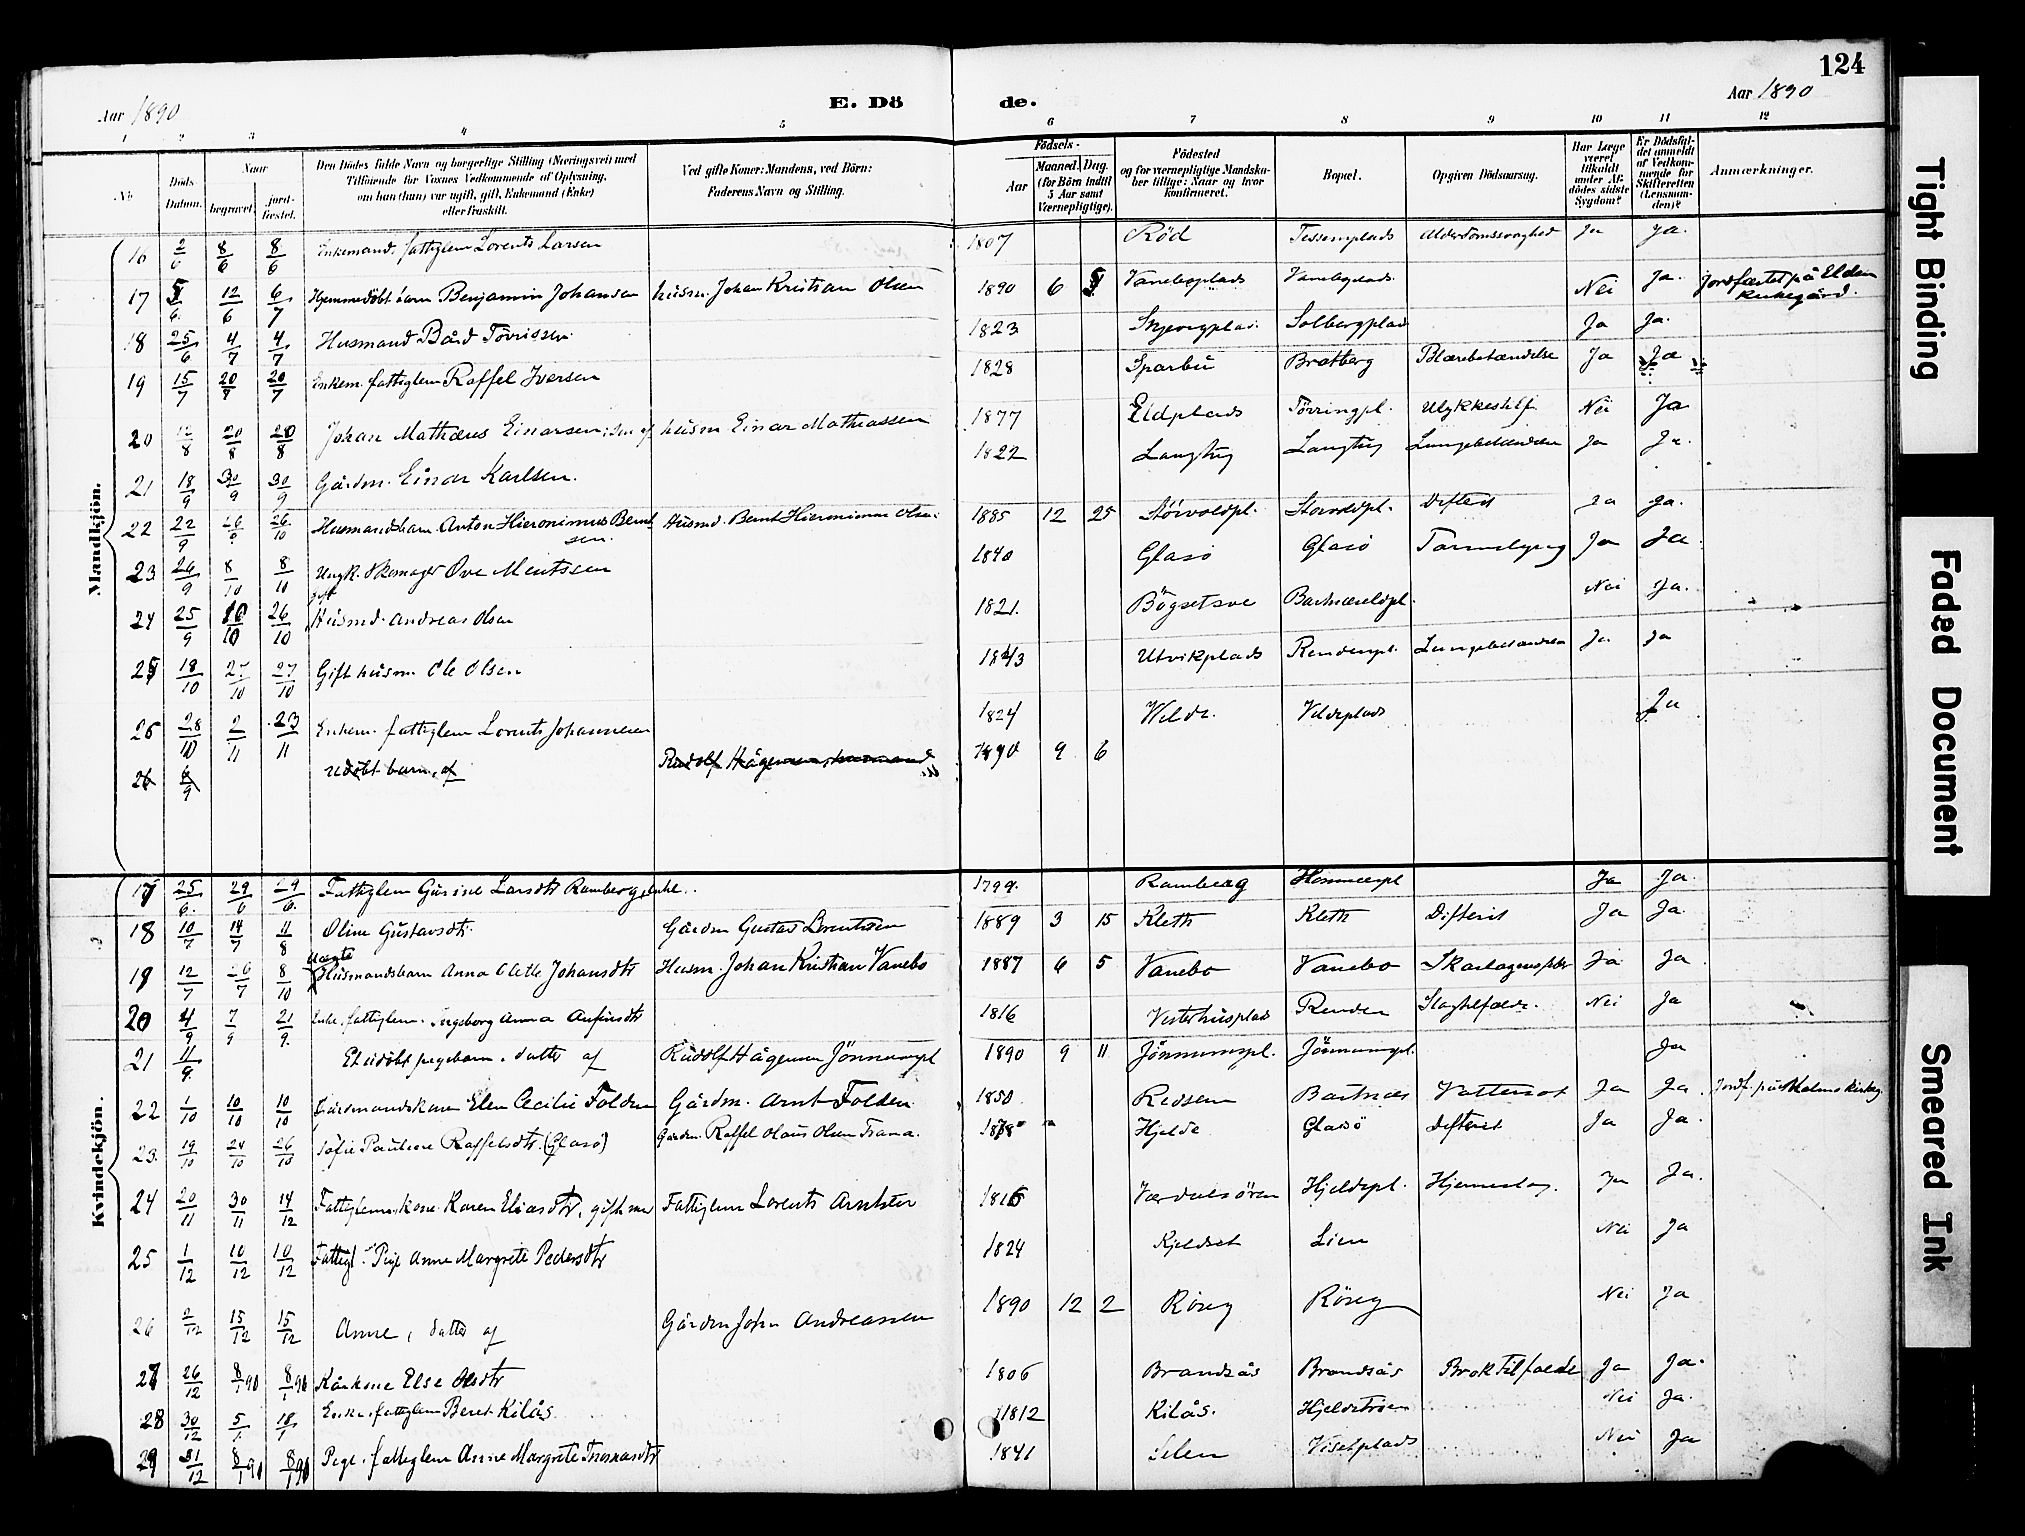 124
Aar 1890 E. Dö de. Aar 1890
1 2 3 4 5 6 7 8 9 10 11 12
No.
Döds Datum.
Naar
begravet.
jord-fæstet.
Den Dödes fulde Navn og borgerlige Stilling (Næringsvei) med
Tilföiende for Voxnes Vedkommende af Oplysning,
om han (hun) var ugift, gift, Enkemand (Enke)
eller fraskilt.
Ved gifte Koner: Mandens, ved Börn:
Faderens Navn og Stilling.
Födsels-
Aar
Maaned. Dag.
(for Börn indtil
5 Aar samt
Værnepligtige).
Födested
og for værnepligtige Mandska-
ber tillige: Naar og hvor
konfirmeret.
Bopæl.
Opgiven Dödsaarsag.
Har Læge
været
tilkaldt
under Af-
dödes sidste
Sygdom?
Er Dödsfal-
det anmeldt
af Vedkom-
mende for
Skifteretten
(Lensman-
den)?
Anmærkninger.
Mandkjön.
16 2/6 8/6 8/6 Enkemand, fattiglem Lorents Larsen 1807 Röd Tessemplads Alderdomssvaghed Ja Ja.
17 5/6 12/6 6/7 Hjemmedöbt barn Benjamin Johansen husm. Johan Kristian Olsen 1890 6 Vaneboplads Vaneboplads. Nei Ja. Jordfæstet på Elden Kirkegård.
18 25/6 4/7 4/7 Husmand Bård Torrissen 1823 Solbergplad Ja Ja.
19 15/7 20/7 20/7 Enkem. fattiglem Raffel Iversen 1828 Sparbu Bratberg Blærebetændelse Ja Ja
20 12/8 20/8 20/8 Johan Mathæus Einarsen, sön af husm Einar Mathiassen 1877 Eldplads Törringpl. Ulykkestilf. Nei Ja
21 18/9 30/9 30/9 Gårdm. Einar Karlsen. 1822 Langtug Langtug Lungebetændelse Ja Ja.
22 22/9 26/10 Husmandsbarn Anton Hieronimus Berntsen. Husmd. Bernt Hieronimus Olsen 1885 12 25 Storvoldpl. Difterit Ja Ja.
23 26/9 8/10 8/10 Ungk. Skomager Ove Mentssen 1840 Glasö Glasö Ja Ja.
24 25/9 10/10 26/10 gift Husmd. Andreas Olsen 1821. Bögsetsve Nei Ja.
25 18/10 27/10 27/10 Gift husm. Ole Olsen 1843 Utvikplads Rendenpl. Lungebetændelse Ja Ja
26 28/10 2/11 23/11 Enkem. fattiglem Lorents Johannesen 1824 Velde. Veldeplads Ja
26 6/9 udöbt barn, af Rudolf Hågensen, husmand 1890 9 6
Kvindekjön.
17 25/6. 29/6 29/6. Fattiglem Gurine Larsdtr Ramberg, enke. 1799. Ramberg Ja Ja.
18 10/7 14/7 11/8 Oline Gustavsdtr. Gårdm Gustav Lorentssen 1889 3 15 Kleth Kleth Difterit Ja Ja.
19 12/7 26/7 8/10 Husmandsbarn Anna Olette Johansdtr Husm. Johan Kristian Vanebo 1887 6 5 Vanebo Vanebo Skarlagensfeber Ja Ja
20 4/9 7/9 21/9. Enke. fattiglem. Ingeborg Anna Anfinsdtr 1816 Vesterhusplads Renden Slagtilfælde. Nei Ja
21 11/9. Et udöbt pigebarn. datter af Rudolf Hågensen Jönnumpl 1890 9 11 Jönnumspl. Jönnumpl. Ja
22 1/10 10/10 10/10 Gårdmandskone Elen Cecilie Folden Gårdm. Arnt Folden 1850. Redsem Bartnæs Vattersot Ja Ja. Jordf. på Malmo kirkeg.
23. 19/10 24/10 26/10 Sofie Pauline Raffelsdtr. (Glasö) Gårdm. Raffel Olaus Olsen Trana. 1878 Hjelde Glasö difterit Ja Ja.
24 20/11 30/11 14/12 Fattiglems kone Karen Eliasdtr, gift med Fattiglem Lorents Arntsen 1816 Værdalsören Hjeldepl. Hjerneslag. Ja Ja.
25 1/12 10/12 10/12 Fattigl. Pige Anne Margrete Pedersdtr 1824 Kjeldset Lien Nei Ja
26 2/12 15/12 15/12 Anne, datter af Gårdm John Andreassen 1890 12 2 Röseg Röseg Nei Ja
27 26/12 8/1 90 8/1 90 Kårkone Else Olsdtr 1806 Brandsås Brandsås Broktilfælde Ja Ja.
28 30/12 5/1 18/1 Enke. fattiglem Beret Kilås 1812 Kilås. Nei Ja.
29 31/12 8/1 90 8/1 90 Pige. fattiglem Anne Margrete Tomasdtr 1841 Selen Viselplads Nei Ja
Tight Binding
Faded Document
Smeared Ink